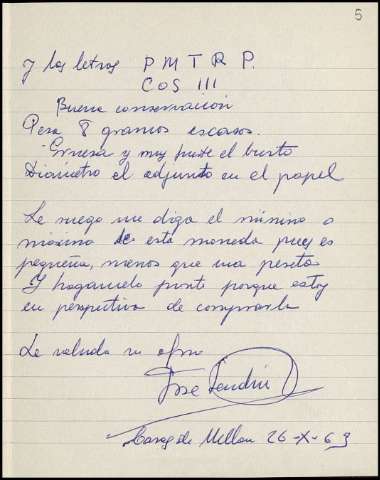 5
y las letras P M T R P.
COS III
Buena conservación
Pesa 8 gramos escasos.
Gruesa y muy fuerte el busto
Diámetro el adjunto en el papel
Le ruego me diga el mínimo o
máximo de esta moneda pues es
pequeña, menos que una peseta
Y hagamelo pronto porque estoy
en perspectiva de comprarla
Le saluda su afmo
Jose
Casas de Millan 26-X-63